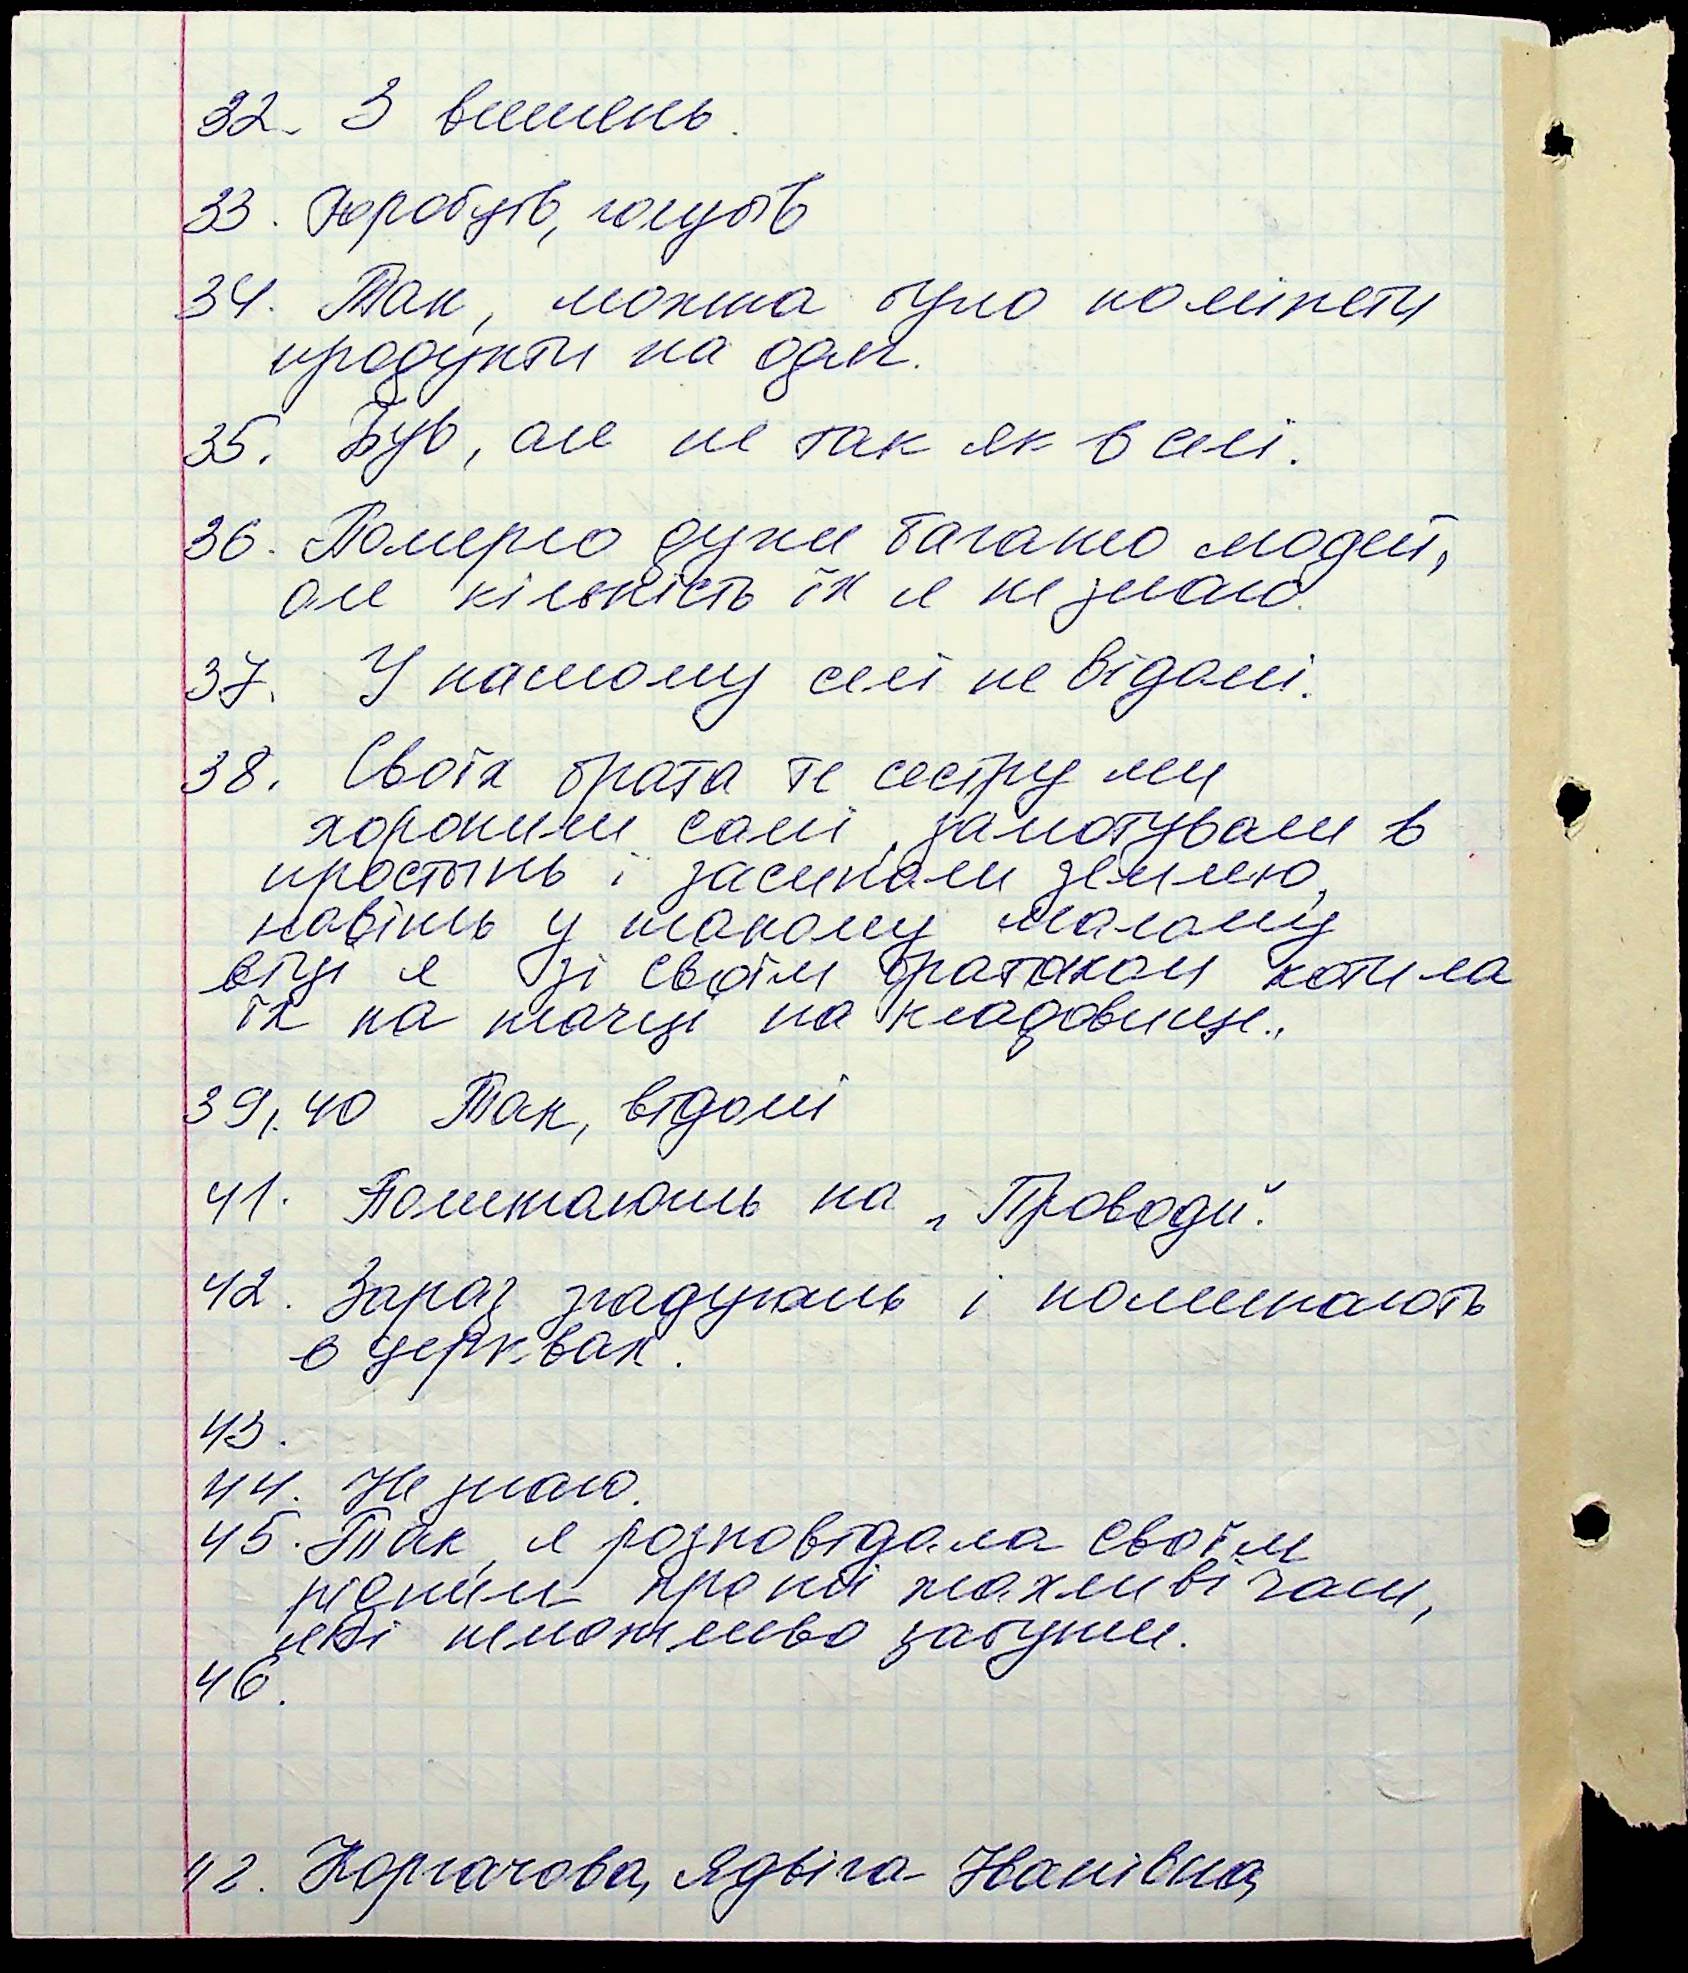 32. З вишень.
33. Горобців, голубів
34. Так, можна було поміняти
продукти на одяг.
35. Був, але не так як в селі.
36. Померло дуже багато людей,
але кількість їх я не знаю.
37. У нашому селі не відомі.
38. Своїх брата та сестру ми
хоронили самі, замотували в
простынь і засипали землею,
навіть у такому малому
віці я зі своїм братиком котила
їх на тачці на кладовище.
39, 40 Так, відомі
41. Поминають на „Проводи".
42. Зараз згадують і поминають
в церквах.
43.
44. Не знаю.
45. Так, я розповідала своїм
рідним про ті жахливі часи,
які неможливо забути.
46.
Ядвіга Іванівна